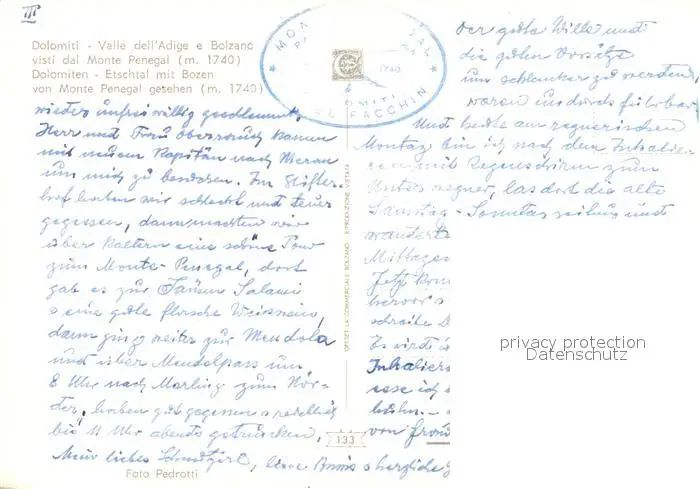 III
Dolomiti - Valle dell'Adige e Bolzano
visti dal Monte Penegal (m. 1740)
Dolomiten - Etschtal mit Bozen
von Monte Penegal gesehen (m. 1740)
wieder unfreiwillig geschlemmt,
Herr und Frau kamen
mit neuem Kapitän nach Meran
um mich zu besuchen. Im Stifter-
hof haben wir schlecht und teuer
gegessen, dann machten wir
über Kaltern eine schöne Tour
zum Monte-Penegal, dort
gab es zur Jausen Salami
u eine gute flasche Weisswein,
dann ging weiter zur Mendola
und über Mendelpass um
8 Uhr nach Marling zum Hör-
ter, haben gut gegessen u redeten
bis 11 Uhr abends getrunken,
Mein liebes, liebe Annis herzliche
Foto Pedrotti
133
OFFSET LA COMMERCIALE BOLZANO RIPRODUZIONE VIETATA
1740
DOLOMITI
FACCHIN
der gute Wille und
die guten Vorsätze
um schlanker zu werden,
waren undurchführbar
Und heute am regnerischen
Montag bin ich nach dem Inhalie-
ren mit Regenschirm zum
las dort die alte
Samstag-Sonntag und
wandert
Mittages
Jetzt
hervor
schreibe
Es wird
Inhaliers
esse ich
von
privacy protection
Datenschutz